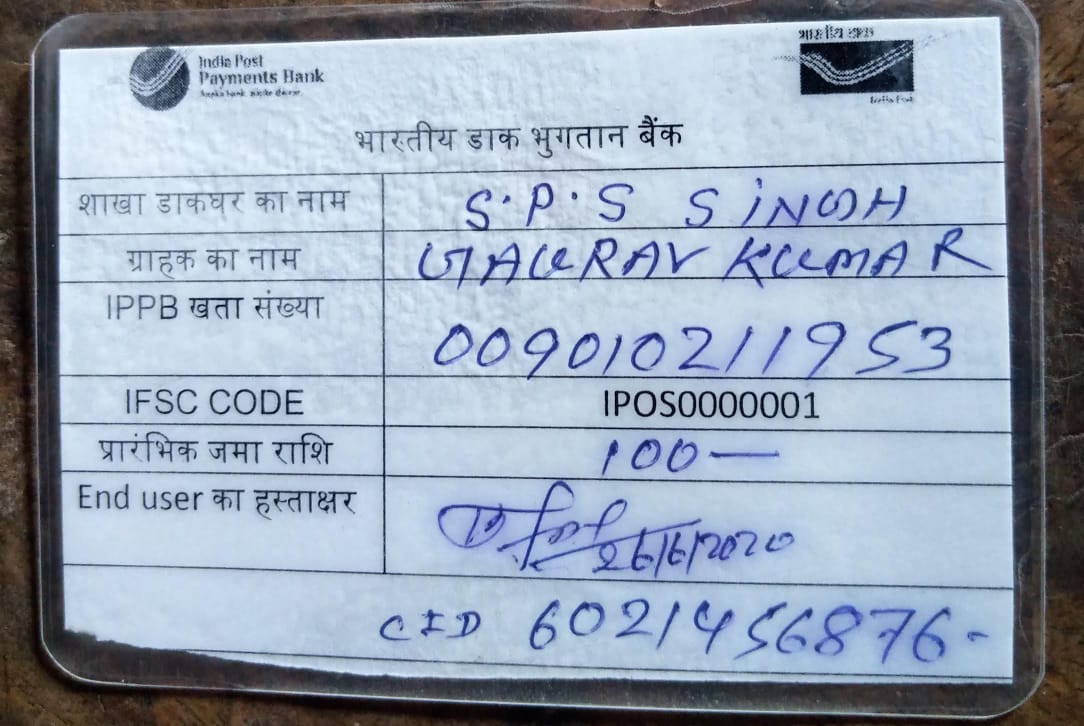 India Post
Payments Bank
भारतीय डाक
India Post
भारतीय डाक भुगतान बैंक
शाखा डाकघर का नाम S.P.S SiNGH
ग्राहक का नाम GAURAV KUMAR
IPPB खता संख्या 009010211953
IFSC CODE IPOS0000001
प्रारंभिक जमा राशि 100—
End user का हस्ताक्षर 26/6/2020
CID 6021456876-